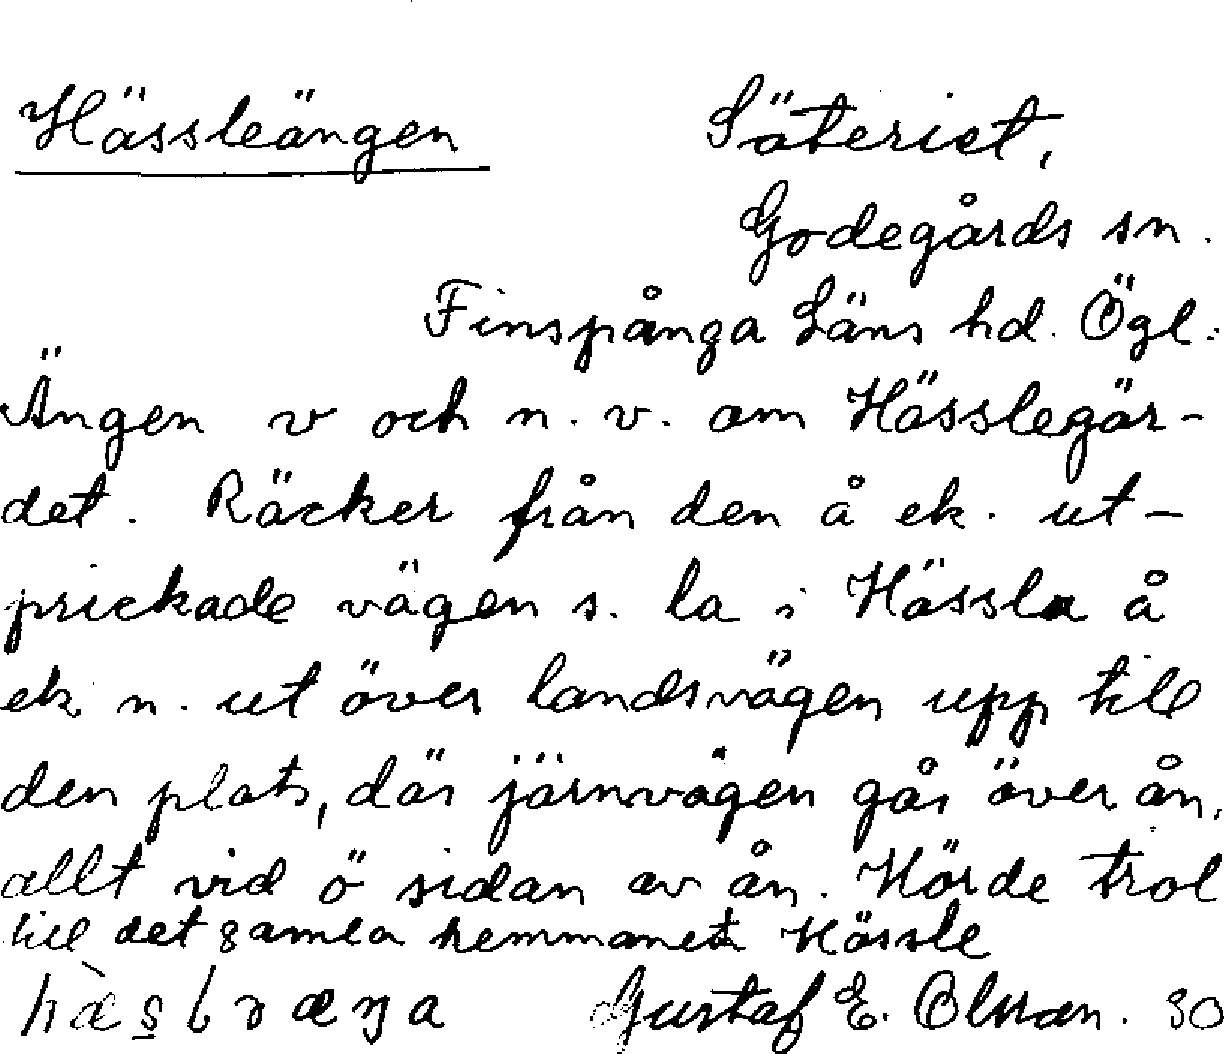 Hässleängen Säteriet,
Godegårds sn.
Finspånga Läns hd. Ögl.
Ängen v och n. v. om Hässlegär-
det. Räcker från den å ek. ut-
prickade vägen s. la i Hässla å
ek n. ut över landsvägen upp till
den plats, där järnvägen går över ån,
allt vid ö sidan av ån. Hörde trol
till det gamla hemmanet Hässle
Gustaf E. Olsson. 30